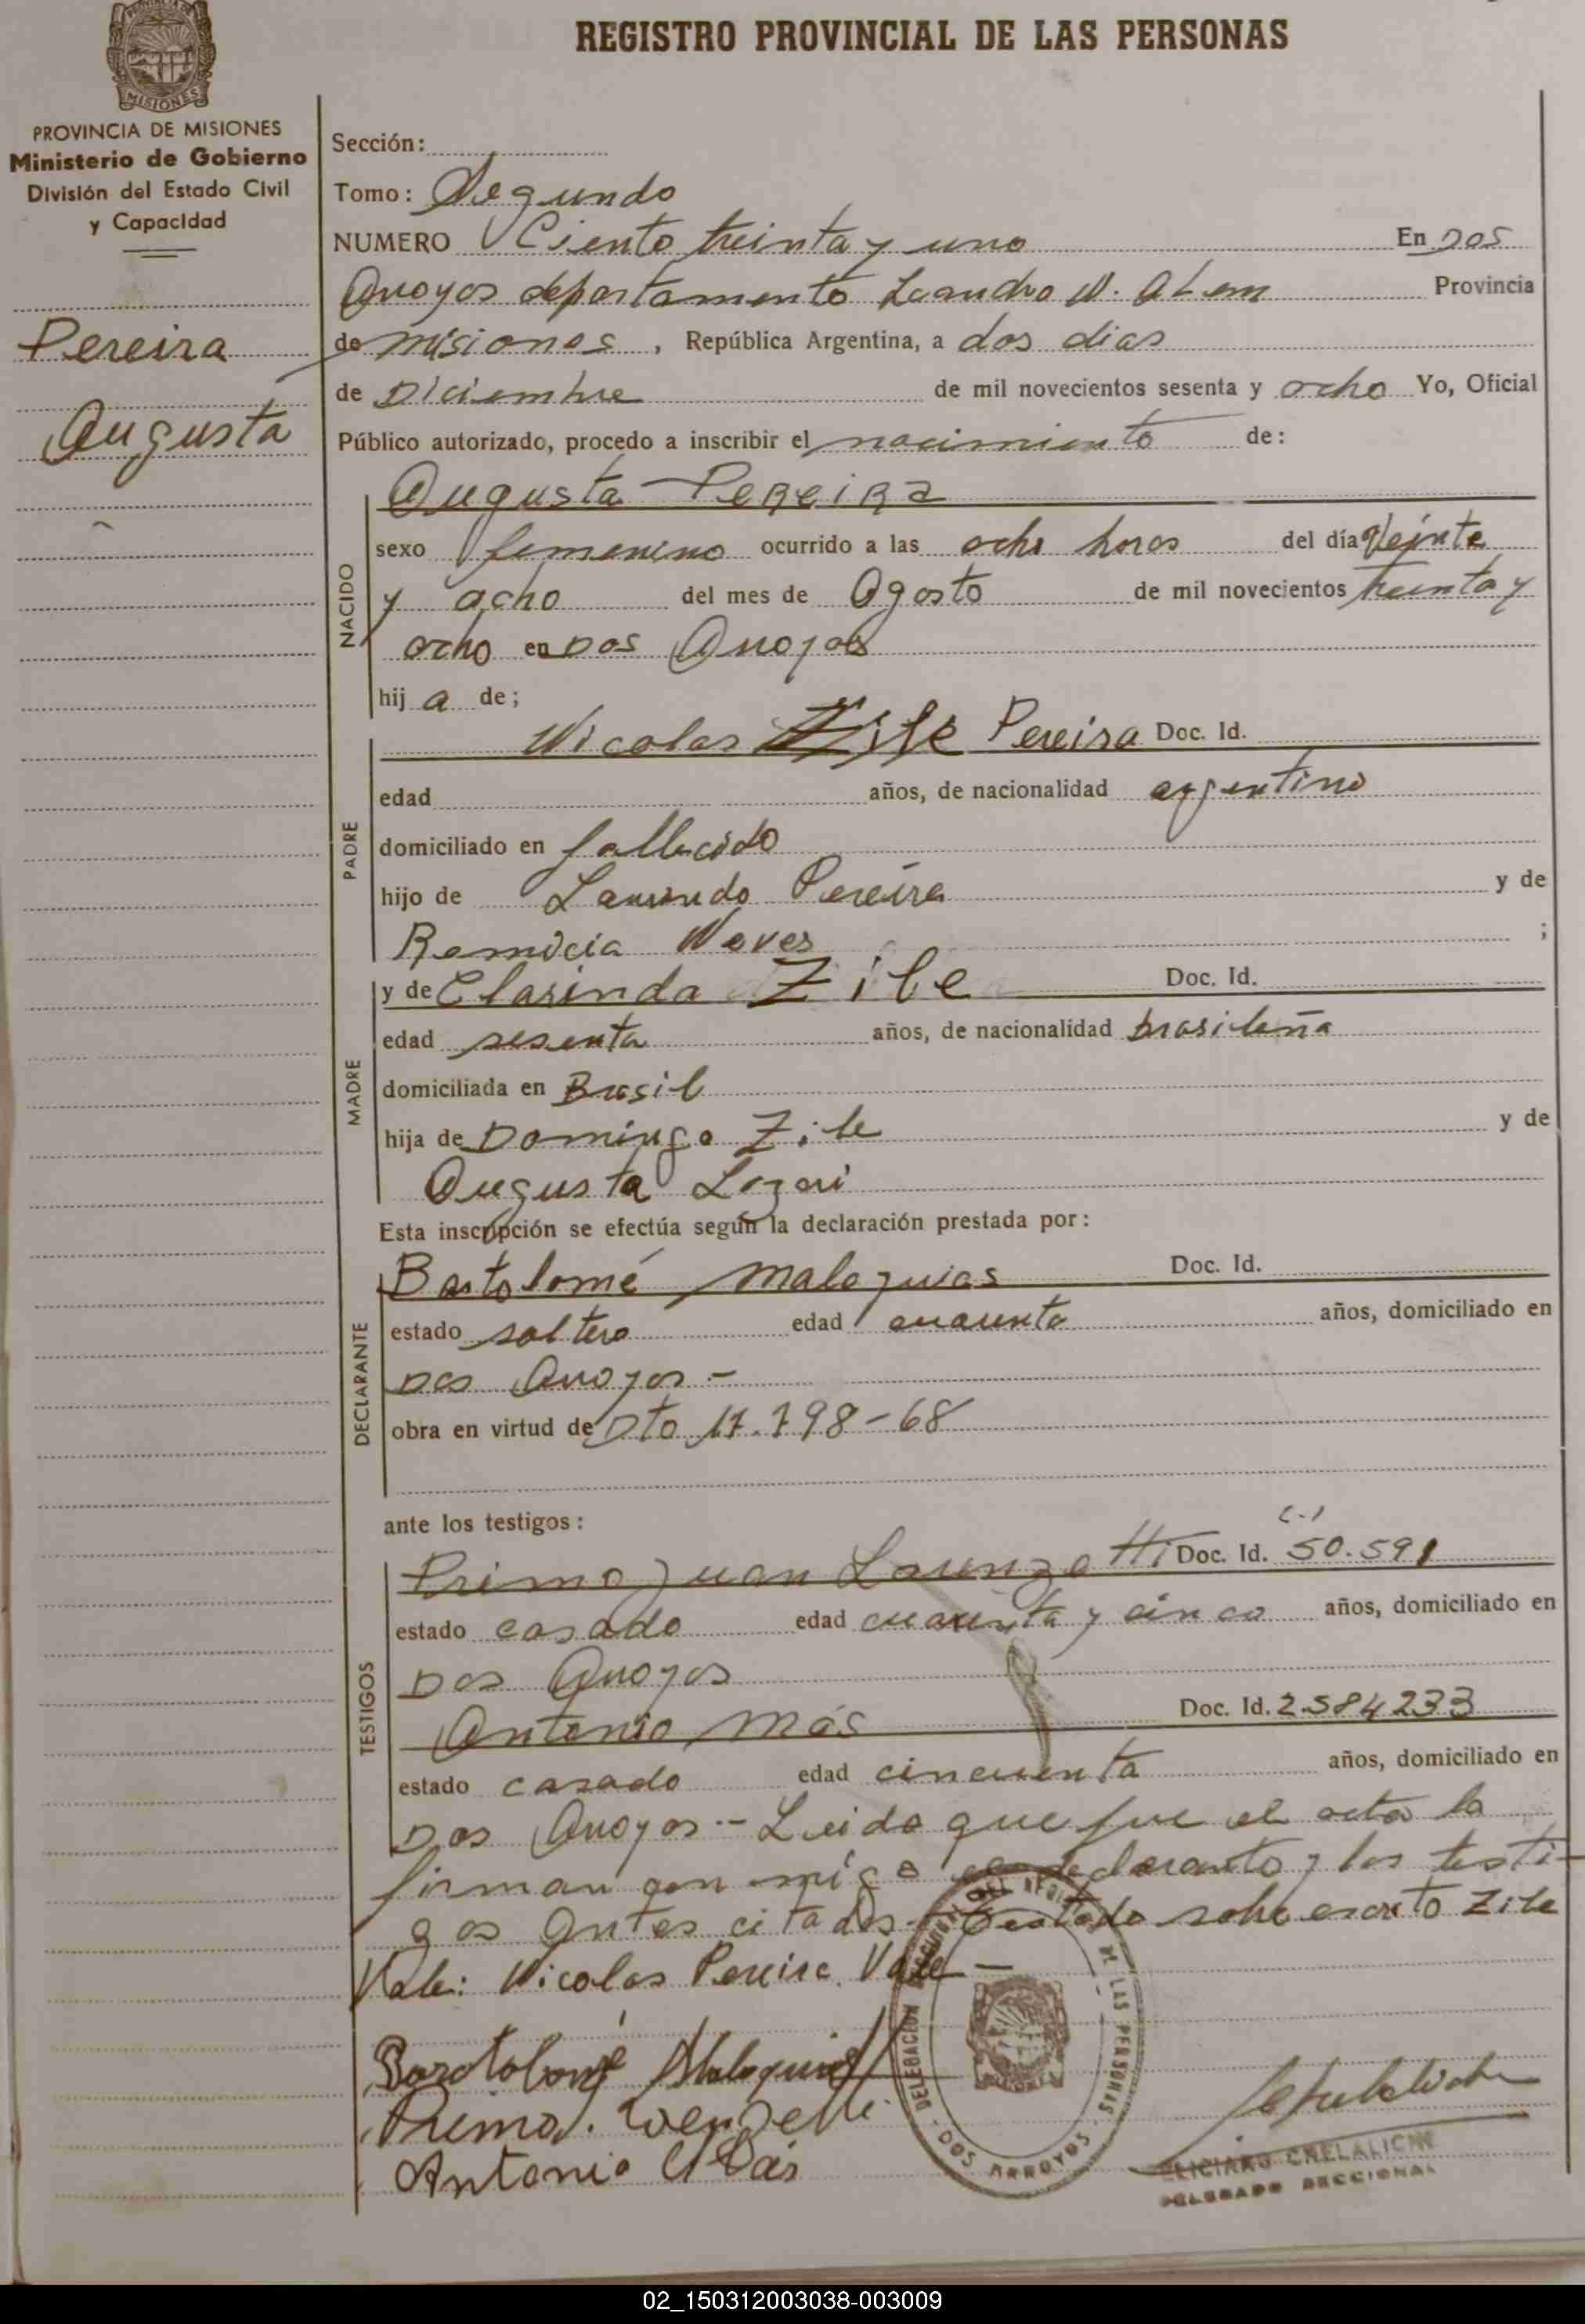 REGISTRO PROVINCIAL DE LAS PERSONAS
MISIONES
PROVINCIA DE MISIONES
Ministerio de Gobierno
División del Estado Civil
y Capacidad
Pereira
Augusta
Sección:
Tomo: Segundo
NUMERO Ciento treinta y uno En Dos
Arroyos departamento Leandro N. Alem Provincia
de misiones, República Argentina, a dos dias
de Diciembre de mil novecientos sesenta y ocho Yo, Oficial
Público autorizado, procedo a inscribir el nacimiento de:
NACIDO
Augusta Pereira
sexo femenino ocurrido a las ocho horas del día Veinte
y ocho del mes de Agosto de mil novecientos treinta y
ocho en Dos Arroyos
hij a de;
PADRE
Nicolas Pereira Doc. Id.
edad años, de nacionalidad argentino
domiciliado en fallecido
hijo de Laurindo Pereira y de
Remicia Neves ;
MADRE
y de Clarinda Zile Doc. Id.
edad sesenta años, de nacionalidad brasileña
domiciliada en Brasil
hija de Domingo Zile y de
Augusta Lozari
Esta inscripción se efectúa según la declaración prestada por:
DECLARANTE
Bartolomé Malaquias Doc. Id.
estado soltero edad cuarenta años, domiciliado en
Dos Arroyos -
obra en virtud de Dto 17.798-68
ante los testigos:
TESTIGOS
Primo Juan Lorenzatti Doc. Id. C.I 50.591
estado casado edad cuarenta y cinco años, domiciliado en
Dos Arroyos
Antonio Más Doc. Id. 2.584233
estado casado edad cincuenta años, domiciliado en
Dos Arroyos.- Leida que fue el acta la
firman con migo el declarante y los testi-
gos antes citados. Testado sobre escrito Zile
Vale: Nicolas Pereira Vale -
Bartolomé Malaquias
Primo J.
Antonio Más
DELEGACION DE LAS PERSONAS
DOS ARROYOS
CHELALICHE
DELEGADO SECCIONAL
02_150312003038-003009